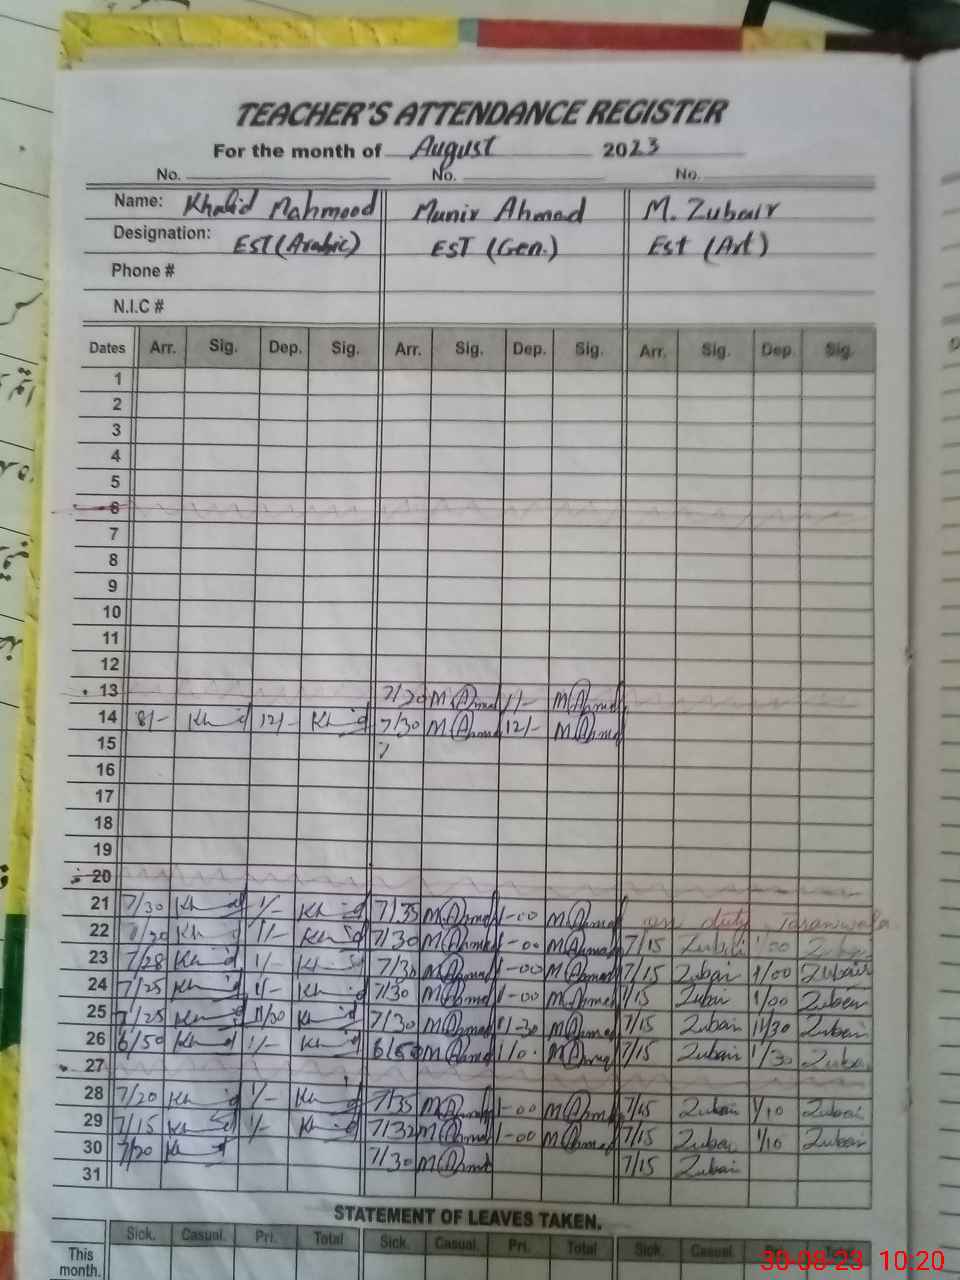 TEACHER'S ATTENDANCE REGISTER
For the month of August 2023
No. No. No.
Name: Khalid Mahmood Munir Ahmad M. Zubair
Designation: EST (Arabic) EST (Gen.) Est (Art)
Phone #
N.I.C #
Dates Arr. Sig. Dep. Sig. Arr. Sig. Dep. Sig. Arr. Sig. Dep. Sig.
1
2
3
4
5
6
7
8
9
10
11
12
13 7/30 M Ahmd 1/- M Ahmd
14 8/- Khalid 12/- Khalid 7/30 M Ahmd 12/- M Ahmd
15 7
16
17
18
19
20
21 7/30 Khalid 1/- Khalid 7/35 M Ahmd 1-00 M Ahmd on duty
22 7/20 Khalid 1/- Khalid 7/30 M Ahmd 1-00 M Ahmd 7/15 Zubair 1/00 Zubair
23 7/28 Khalid 1/- Khalid 7/30 M Ahmd 1-00 M Ahmd 7/15 Zubair 1/00 Zubair
24 7/25 Khalid 1/- Khalid 7/30 M Ahmd 1-00 M Ahmd 7/15 Zubair 1/00 Zubair
25 7/25 Khalid 11/30 Khalid 7/30 M Ahmd 11-30 M Ahmd 7/15 Zubair 11/30 Zubair
26 6/50 Khalid 1/- Khalid 6/50 M Ahmd M Ahmd 7/15 Zubair 1/30 Zubair
27
28 7/20 Khalid 1/- Khalid 7/35 M Ahmd 1-00 M Ahmd 7/15 Zubair 1/10 Zubair
29 7/15 Khalid 1/- Khalid 7/32 M Ahmd 1-00 M Ahmd 7/15 Zubair 1/10 Zubair
30 7/20 Khalid 7/30 M Ahmd 7/15 Zubair
31
STATEMENT OF LEAVES TAKEN.
Sick. Casual. Pri. Total Sick. Casual. Pri. Total Sick. Casual.
This month.
30-08-23 10:20